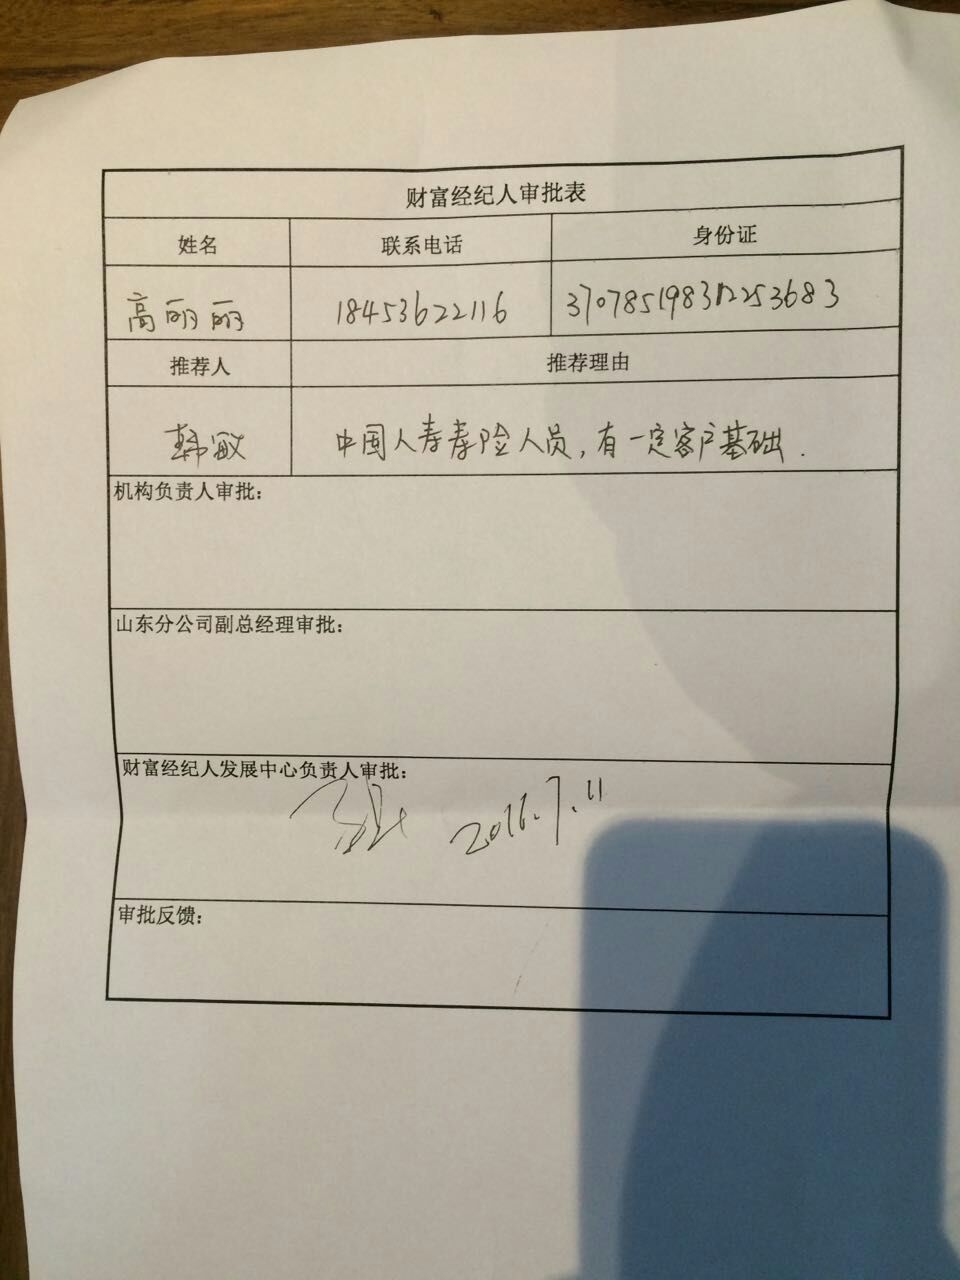 财富经纪人审批表
姓名 联系电话 身份证
高丽丽 18453622116 370785198312253683
推荐人 推荐理由
韩敏 中国人寿寿险人员,有一定客户基础.
机构负责人审批:
山东分公司副总经理审批:
财富经纪人发展中心负责人审批:
2016.7.11
审批反馈: